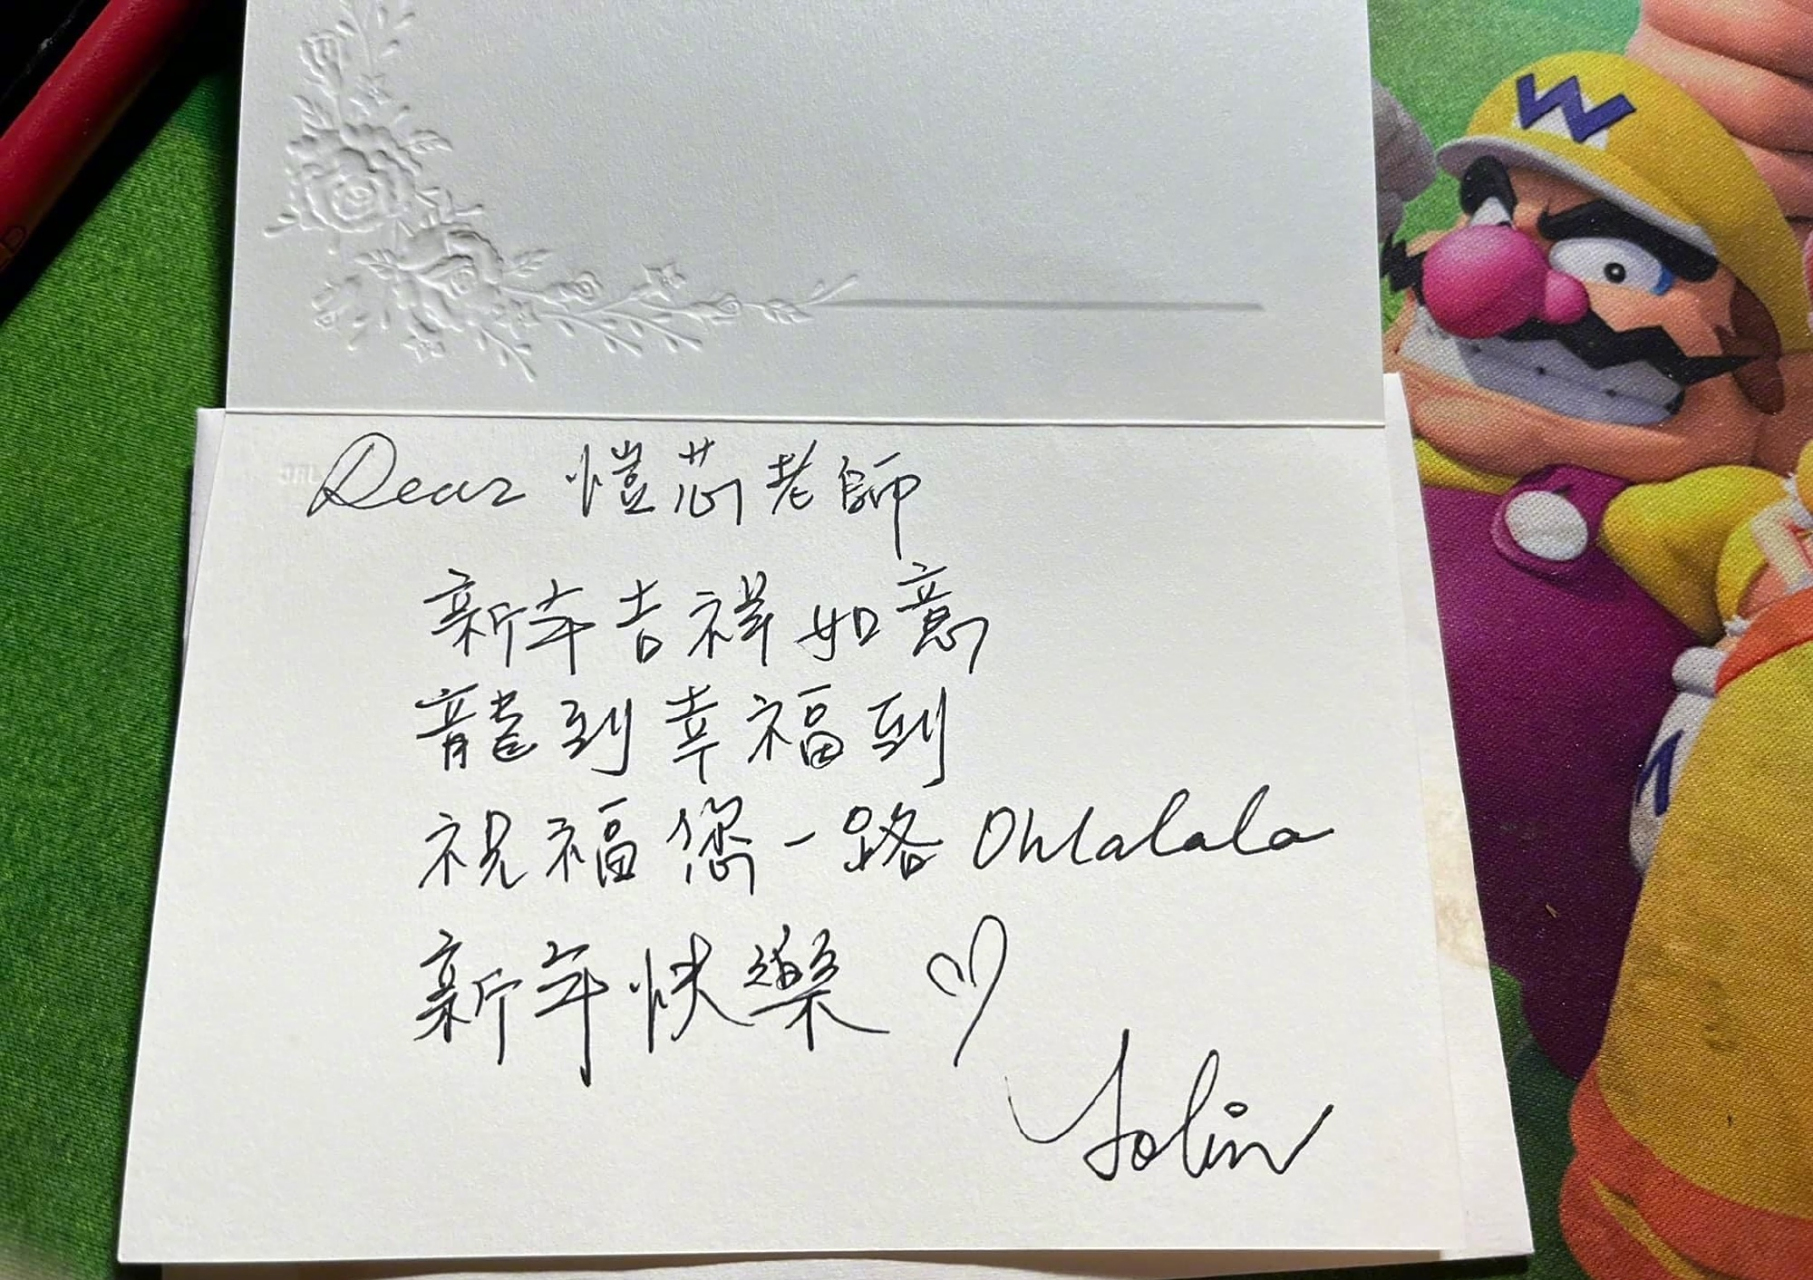 Dear 愷芯老師
新年吉祥如意
龍到幸福到
祝福您一路 Ohlalala
新年快樂♡
Jolin
W